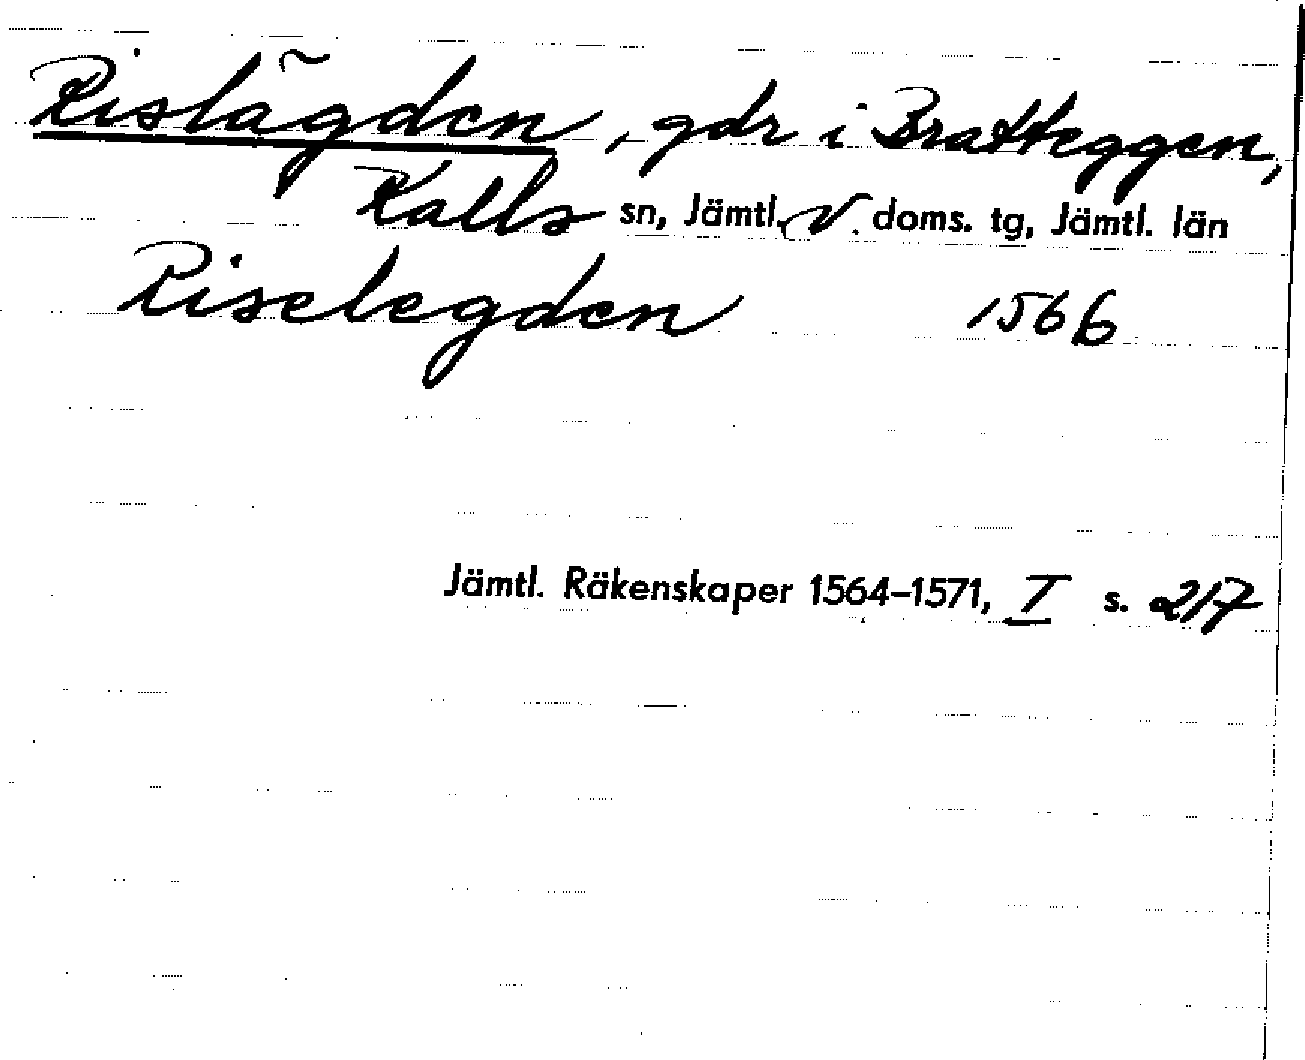 Rislägden, gdr i Bratteggen,
Kalls sn, Jämtl. v. doms. tg, Jämtl. län
Riselegden 1566
Jämtl. Räkenskaper 1564–1571, I s. 217